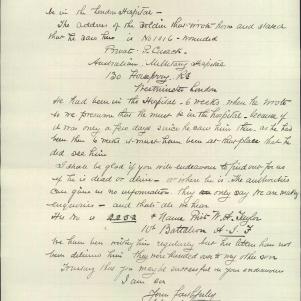 is in the London Hospital -
The address of the Soldier that wrote home and stated
that he saw him is No 1416 - wounded
Privat P. Cusack
Australian Military Hospital
130 Horseferry Rd
Westminster London
He had been in the Hospital - 6 weeks when he wrote
so we presume that he must be in the hospital - because if
it was only a few days since he saw him then, as he has
been there 6 weeks it must have been at that place that he
did see him
I shall be glad if you will endeavour to find out for us
if he is dead or alive - or where he is. The authorities
can give us no information. They only say We are making
enquiries - and that's all we hear
His No is 2252 & Name Priv W. A. Taylor
10th Battalion A. I. F
We have been writing him regularly but his letters have not
been delivered him they were handed over to my other son
Trusting that you may be successful in your endeavours
I am Sir
Yours faithfully